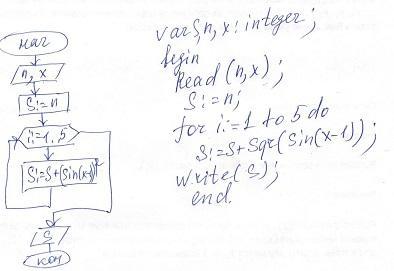 нач
n, x
S:=n
i:=1,5
S:=S+(Sin(x-1))²
S
кон
var S,n,x: integer;
begin
Read (n,x);
S:=n;
for i:=1 to 5 do
S:=S+Sqr(Sin(x-1));
write(S);
end.